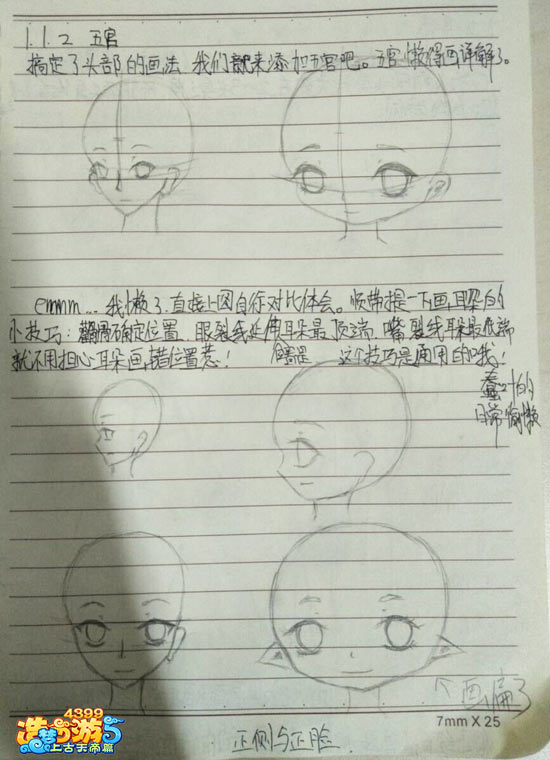 1.1.2 五官
搞定了头部的画法 我们就来添加五官吧。五官懒得画详解了。
emmm... 我懒了.直接上图自行对比体会。顺带提一下画耳朵的
小技巧: 确定位置.眼裂线延伸耳朵最顶端.嘴裂线耳朵最底端
就不用担心耳朵画错位置惹! 这个技巧是通用的哦!
的
日常偷懒
↖画偏了
4399
造梦西游5
上古天帝篇
7mm X 25
正侧与正脸.